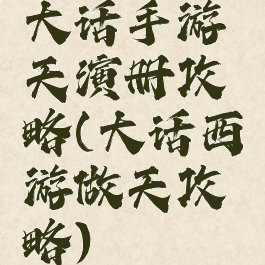 大话手游
天演册攻
略(大话西
游做天攻
略)